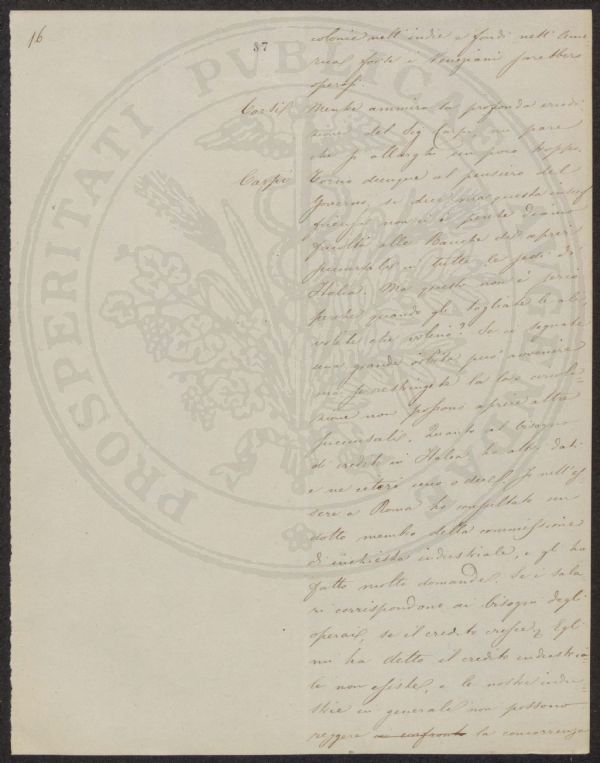 16
37
colonie nell'indie e fondi nell'Ame
rica, forse i Veneziani sarebbero
operosi.
Mentre ammiro la profonda erudi
zione del Sig Carpi, mi pare
che si allarghi un poco troppo.
Carpi Torno dunque al pensiero del
Governo, si dice ma questa
non vi è perche diamo
facoltà alle Banche di aprir
succursali in tutte le parti di
Italia. Ma questo non è serio
perche quando gli tagliate le ali,
volete che volino? Se ci segnate
una grande
ma se restringete la loro circola-
zione non possono aprire altre
succursali. Quanto al bisogno
di credito in Italia ho altri dati
e ne citerò uno o due. Nell'es
sere a Roma ho consultato un
dotto membro della commissione
di inchiesta industriale, e gli ho
fatto molte domande. Se i sala
ri corrispondono ai bisogni degli
operai, se il credito cresce. Egli
mi ha detto il credito industria
le non esiste, e le nostre indu-
strie in generale non possono
reggere a confronto la concorrenza
PROSPERITATI PUBLICAE AUGENDAE